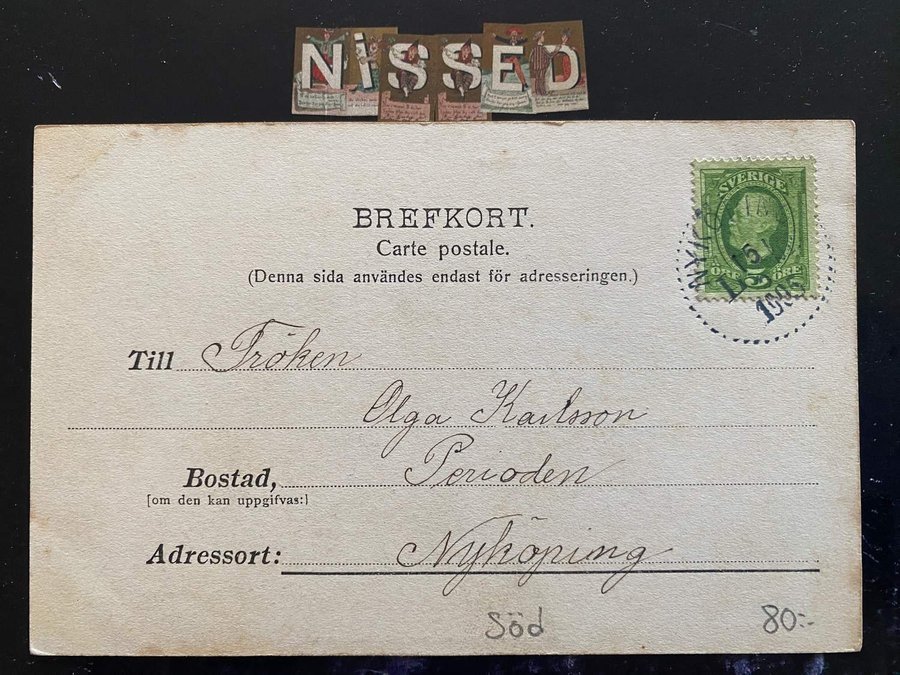 NISSED
BREFKORT.
Carte postale.
(Denna sida användes endast för adresseringen.)
SVERIGE
ÖRE 5 ÖRE
Till Fröken
Olga Karlsson
Bostad, Perioden
[om den kan uppgifvas:]
Adressort: Nyköping
Söd
80:-